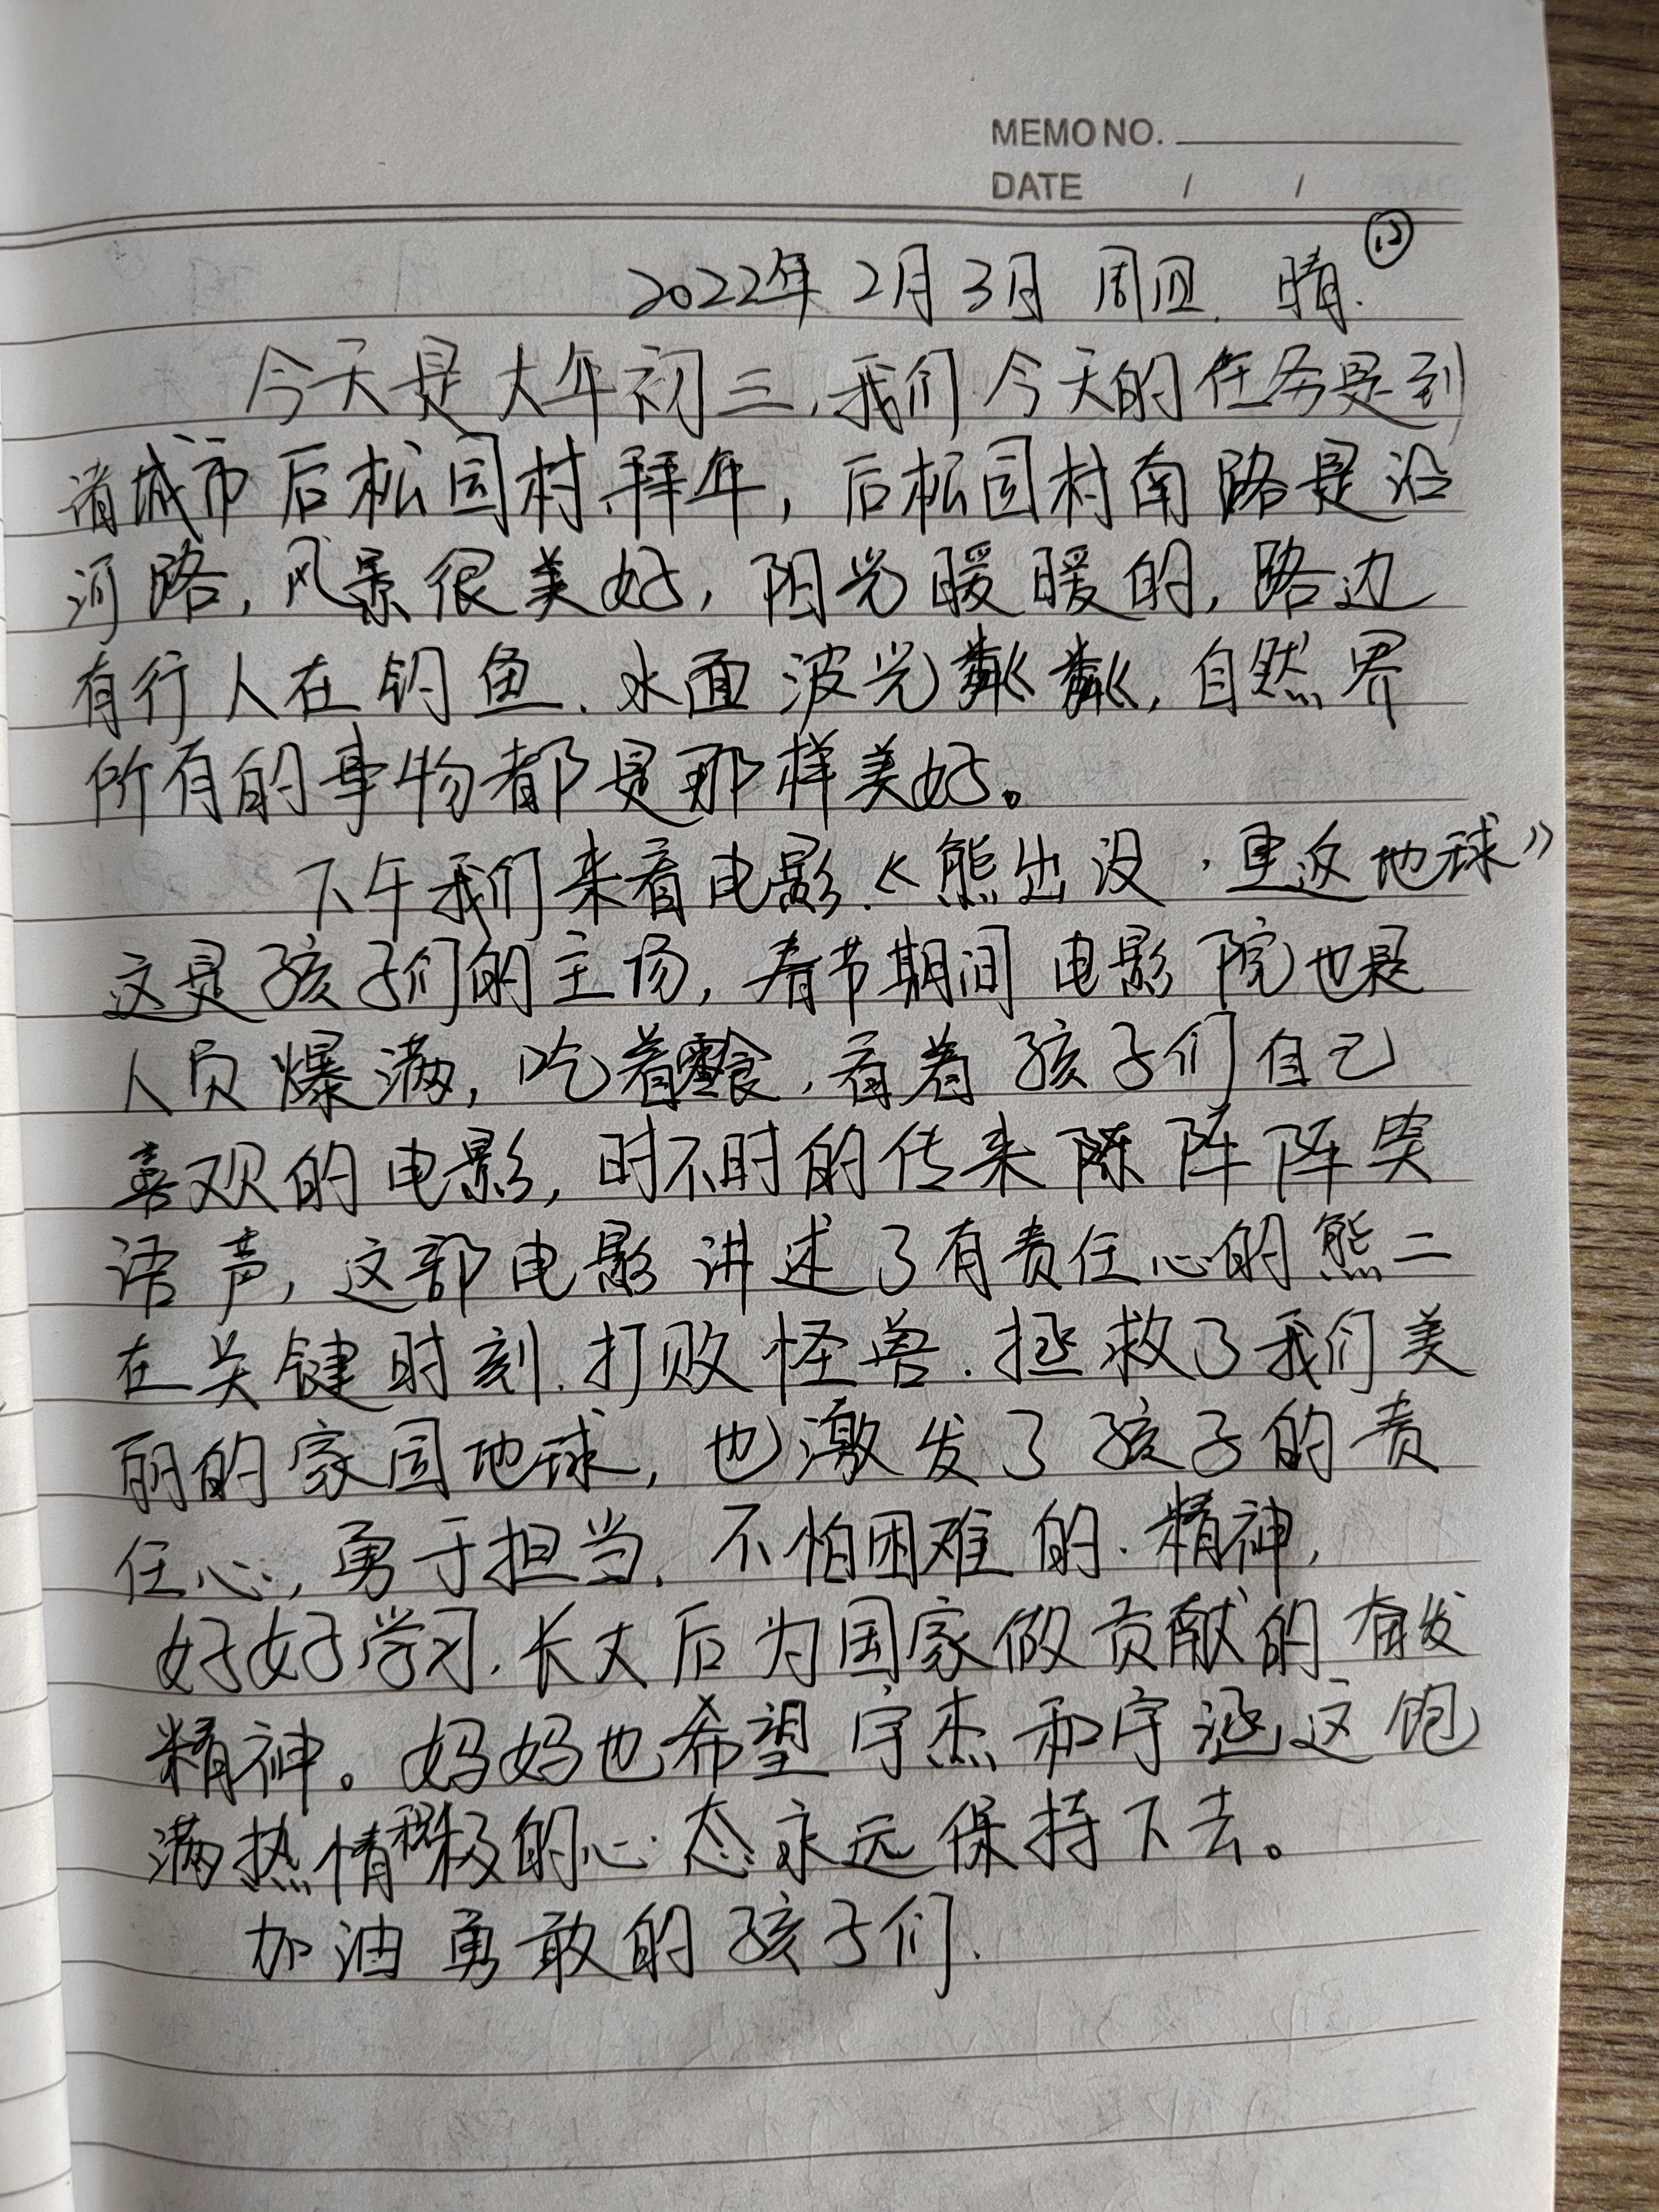 MEMO NO.
DATE / /
2022年 2月 3日 周四. 晴.
今天是大年初三,我们今天的任务是到
诸城市后松园村拜年,后松园村南路是沿
河路,风景很美好,阳光暖暖的,路边
有行人在钓鱼.水面波光粼粼,自然界
所有的事物都是那样美好。
下午我们来看电影.《熊出没·重返地球》
这是孩子们的主场,春节期间电影院也是
人员爆满,吃着零食,看着孩子们自己
喜欢的电影,时不时的传来阵阵笑
语声,这部电影讲述了有责任心的熊二
在关键时刻.打败怪兽.拯救了我们美
丽的家园地球,也激发了孩子的责
任心,勇于担当.不怕困难的.精神,
好好学习.长大后为国家做贡献的奋发
精神。妈妈也希望宇杰和宇涵这饱
满热情积极的心态永远保持下去。
加油勇敢的孩子们.